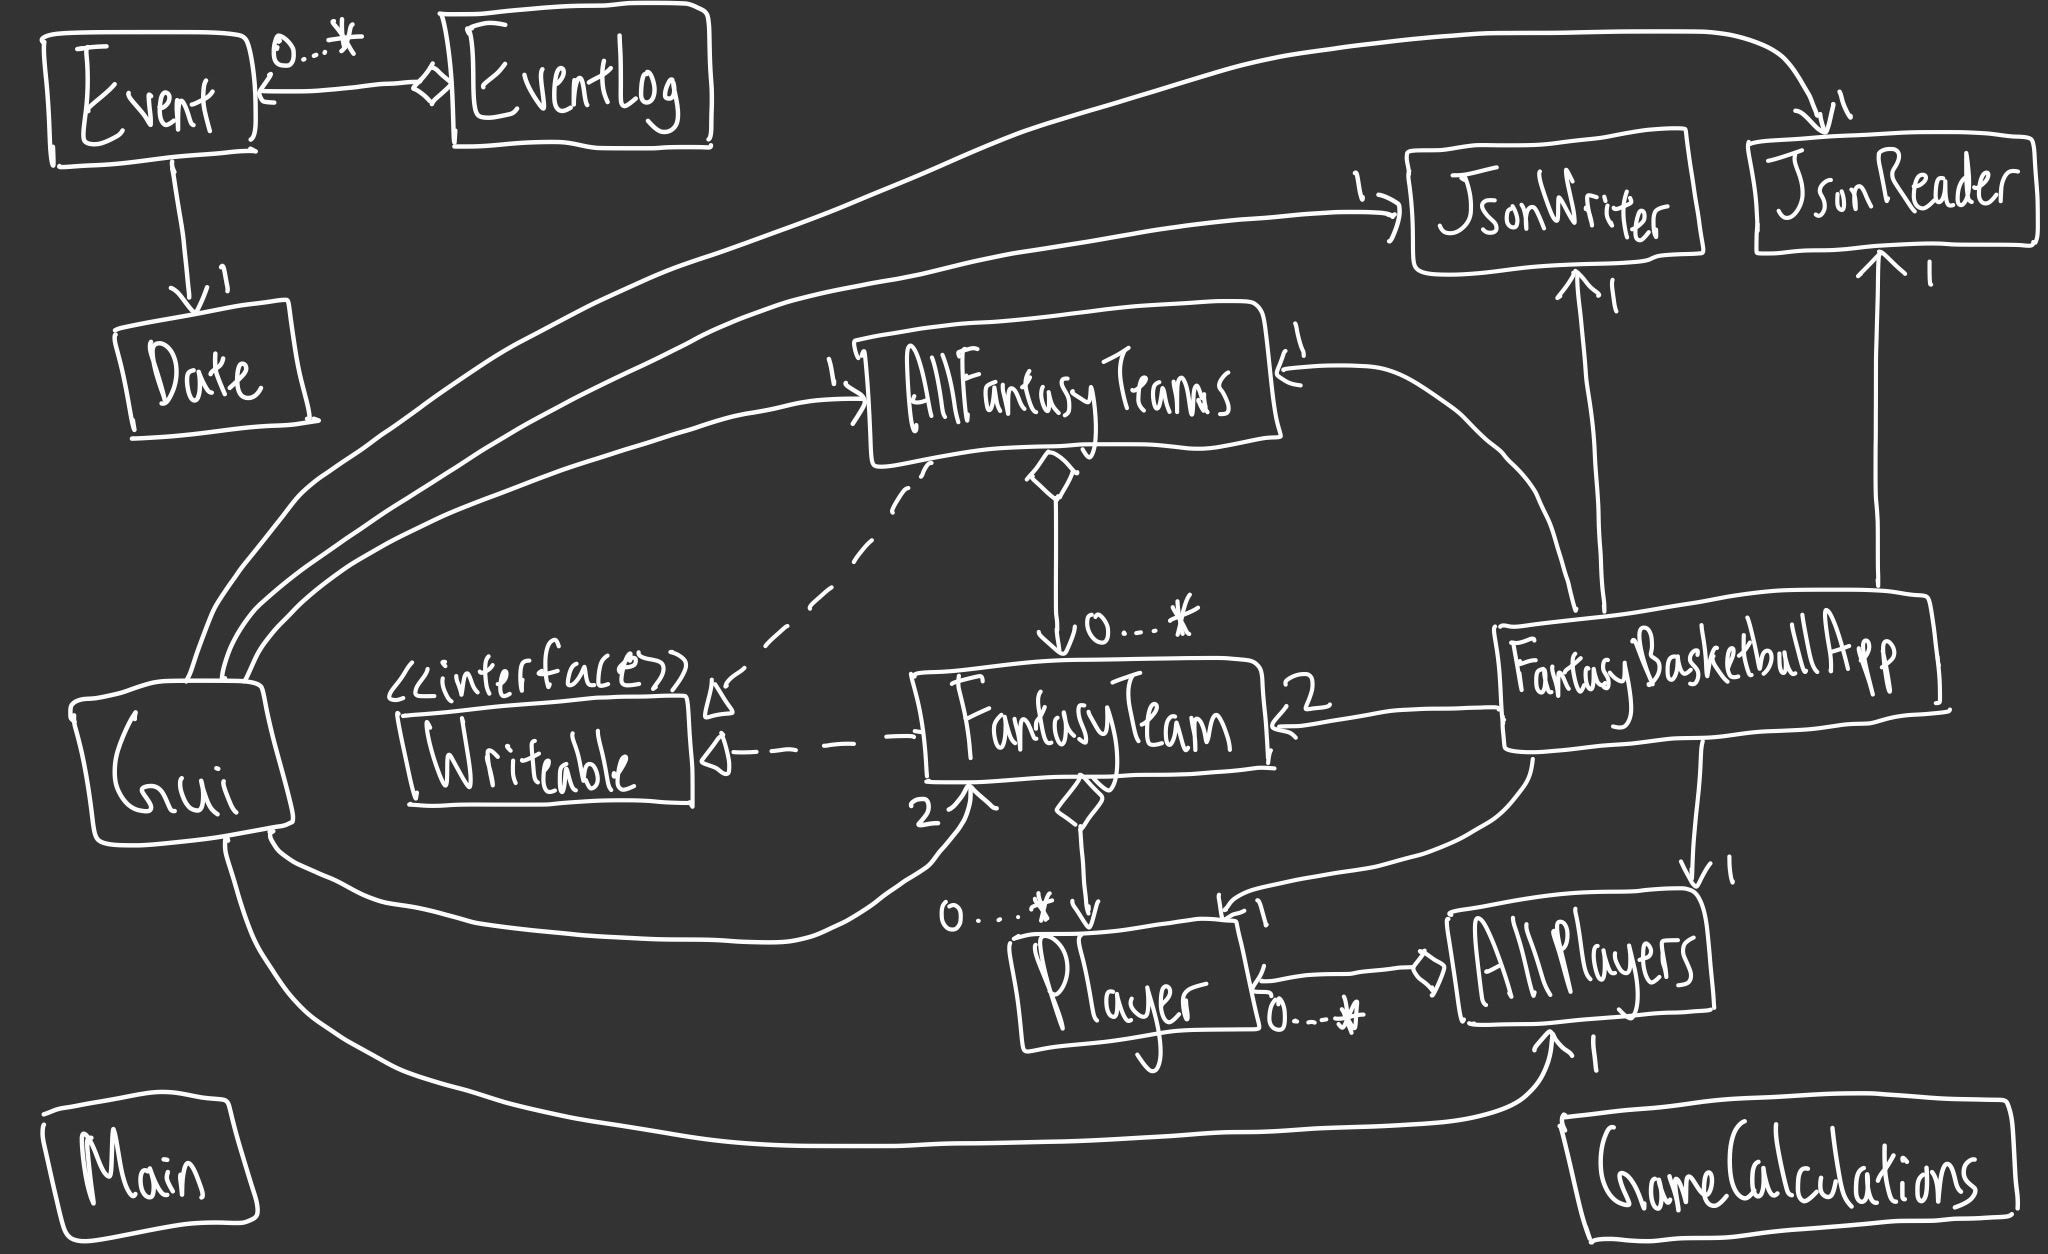 Event
0...*
EventLog
1
JsonReader
1
JsonWriter
1
1
1
Date
1
AllFantasyTeams
1
0...*
<<interface>>
Writeable
FantasyTeam
2
FantasyBasketballApp
Gui
2
0...*
1
1
Player
0...*
AllPlayers
1
Main
GameCalculations